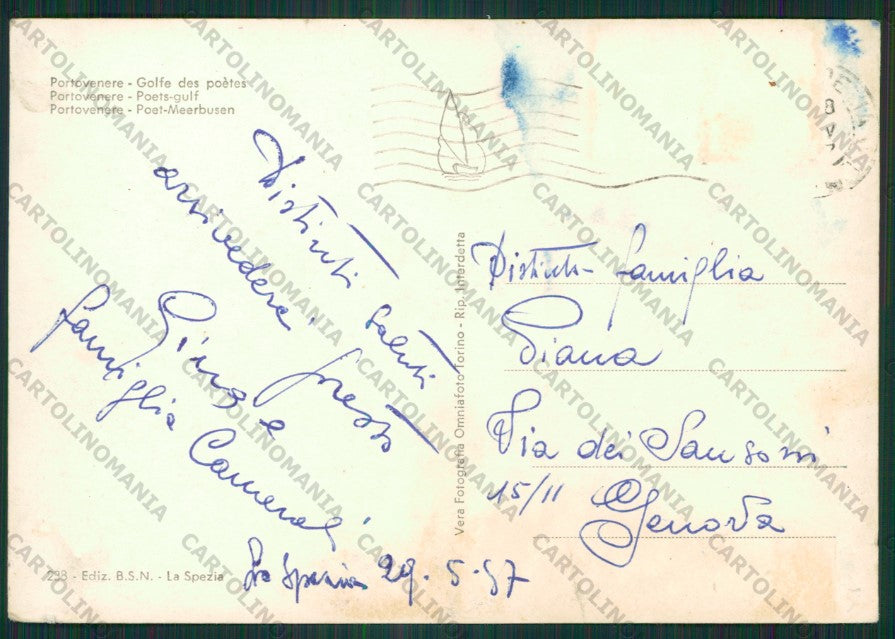 Portovenere - Golfe des poètes
Portovenere - Poets-gulf
Portovenere - Poet-Meerbusen
Distinti saluti
arrivederci presto
Gino e
famiglia Camera
La Spezia 29.5.57
298 - Ediz. B.S.N. - La Spezia
Vera Fotografia Omniafoto Torino - Rip. Interdetta
Distinta famiglia
Piana
Via dei Sansoni
15/11
Genova
CARTOLINOMANIA